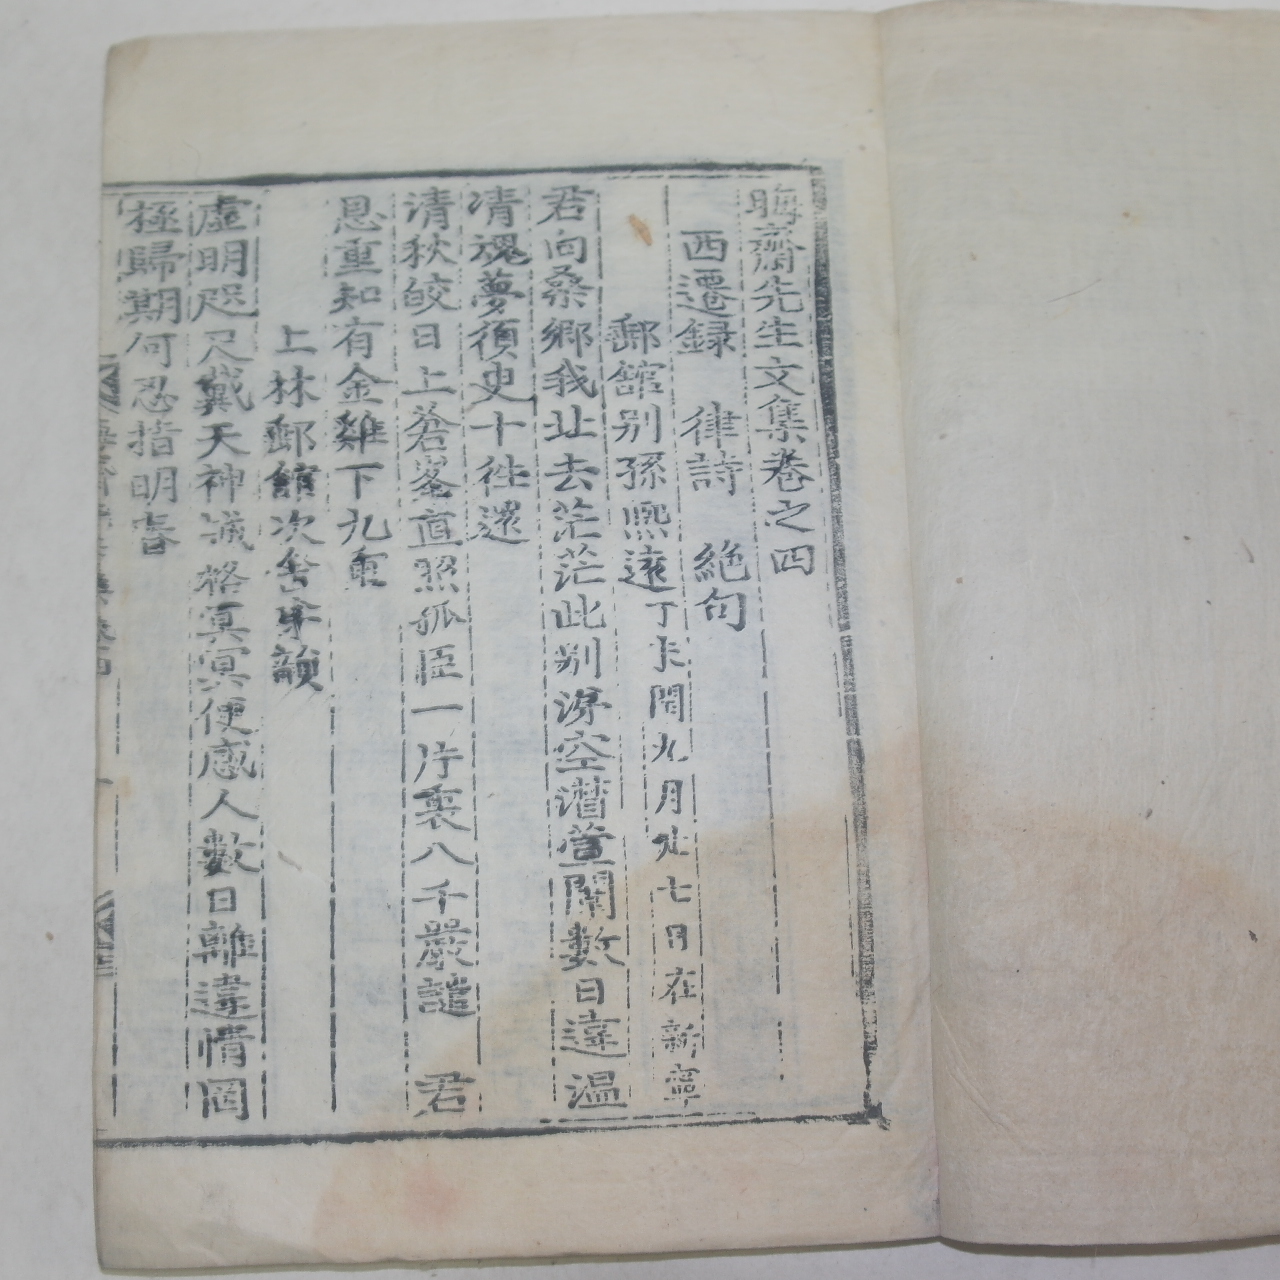 晦齋先生文集卷之四
西遷錄 律詩 絶句
郵館別孫熙遠丁未閏九月廿七日在新寧
君向桑鄕我北去茫茫此別淚空潸萱闈數日違溫
凊魂夢須臾十往還
淸秋皎日上蒼峯直照孤臣一片衷八千嚴譴 君
恩重知有金雞下九重
上林郵館次舍弟韻
虛明咫尺戴天神誠格冥冥便感人數日離違情罔
極歸期何忍指明春